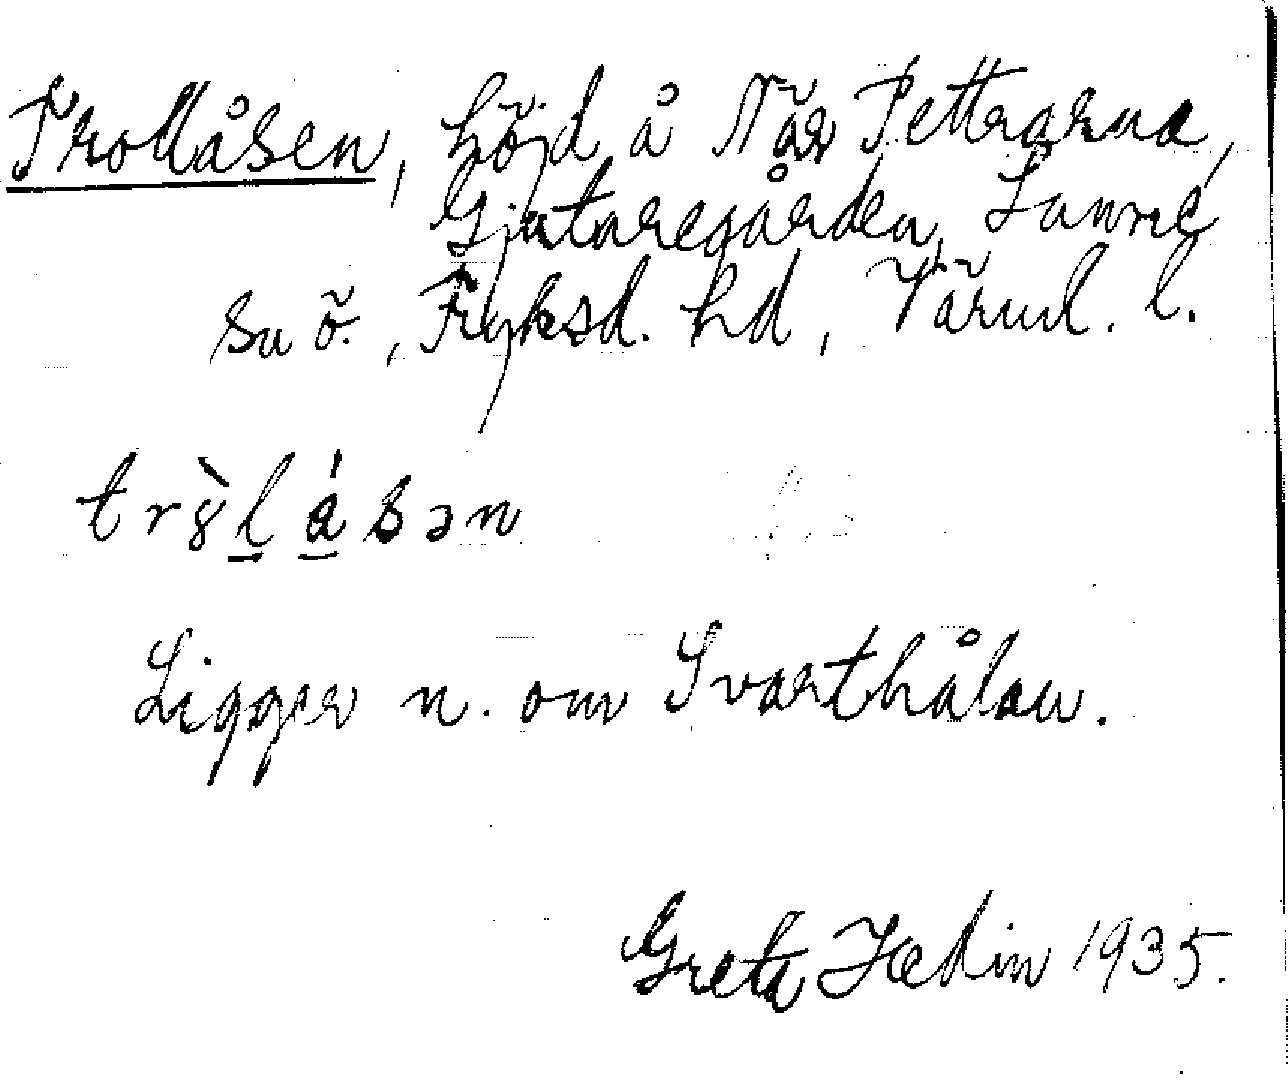 Trollåsen, höjd å När Pettrarna,
Gjutaregården, Sunne
sn ö., Fryksd. hd, Värml. l.
tr8̀l ásən
Ligger n. om Svarthålan.
Greta Hedin 1935.